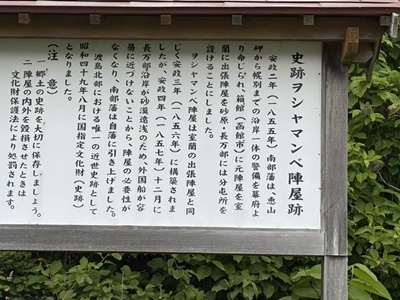 史跡ヲシャマンベ陣屋跡
安政二年（一八五五年）南部藩は、恵山
岬から幌別までの沿岸一体の警備を幕府よ
り命じられ、箱館（函館市）に元陣屋を室
蘭に出張陣屋を砂原・長万部には分屯所を
設けることにしました。
ヲシャマンベ陣屋は室蘭の出張陣屋と同
じく安政三年（一八五六年）に構築されま
したが、安政四年（一八五七年）十二月に
長万部沿岸が砂漠遠浅のため、外国船が容
易に近づけないことから、陣屋の必要性が
なくなり、南部藩は自藩に引き上げました。
渡島北部における唯一の近世史跡として
昭和四十九年八月に国指定文化財（史跡）
となりました。
（注意）
一 郷土の史跡を大切に保存しましょう。
二 陣屋の内外を毀損させたときは
文化財保護法により処罰されます。